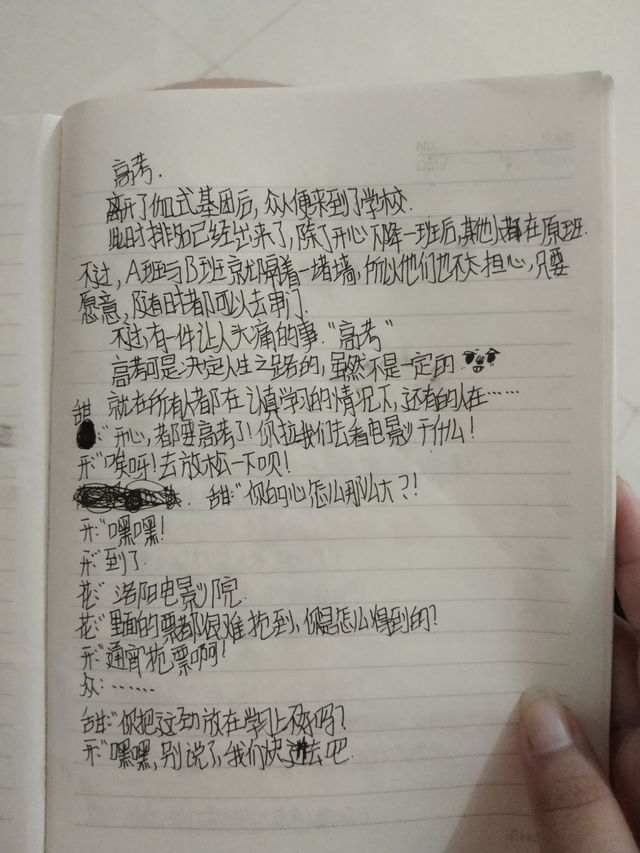 No.
Date
高考.
离开了伽式基团后,众人便来到了学校.
此时排名已经出来了,除了开心下降一班后,其他人都在原班.
不过,A班与B班就隔着一堵墙,所以他们也不太担心,只要
愿意,随时都可以去串门.
不过,有一件让人头痛的事."高考"
高考可是决定人生之路的,虽然不是一定的
就在所有人都在认真学习的情况下,还有的人在……
甜:"开心,都要高考了!你拉我们去看电影干什么!
开:"唉呀!去放松一下呗!
甜:"你的心怎么那么大?!
开:"嘿嘿!
开:"到了.
花:"洛阳电影院.
花:"里面的票都很难抢到,你是怎么得到的?
开:"通宵抢票啊!
众:……
甜:"你把这劲放在学习上不好吗?
开:"嘿嘿,别说了,我们快进去吧.